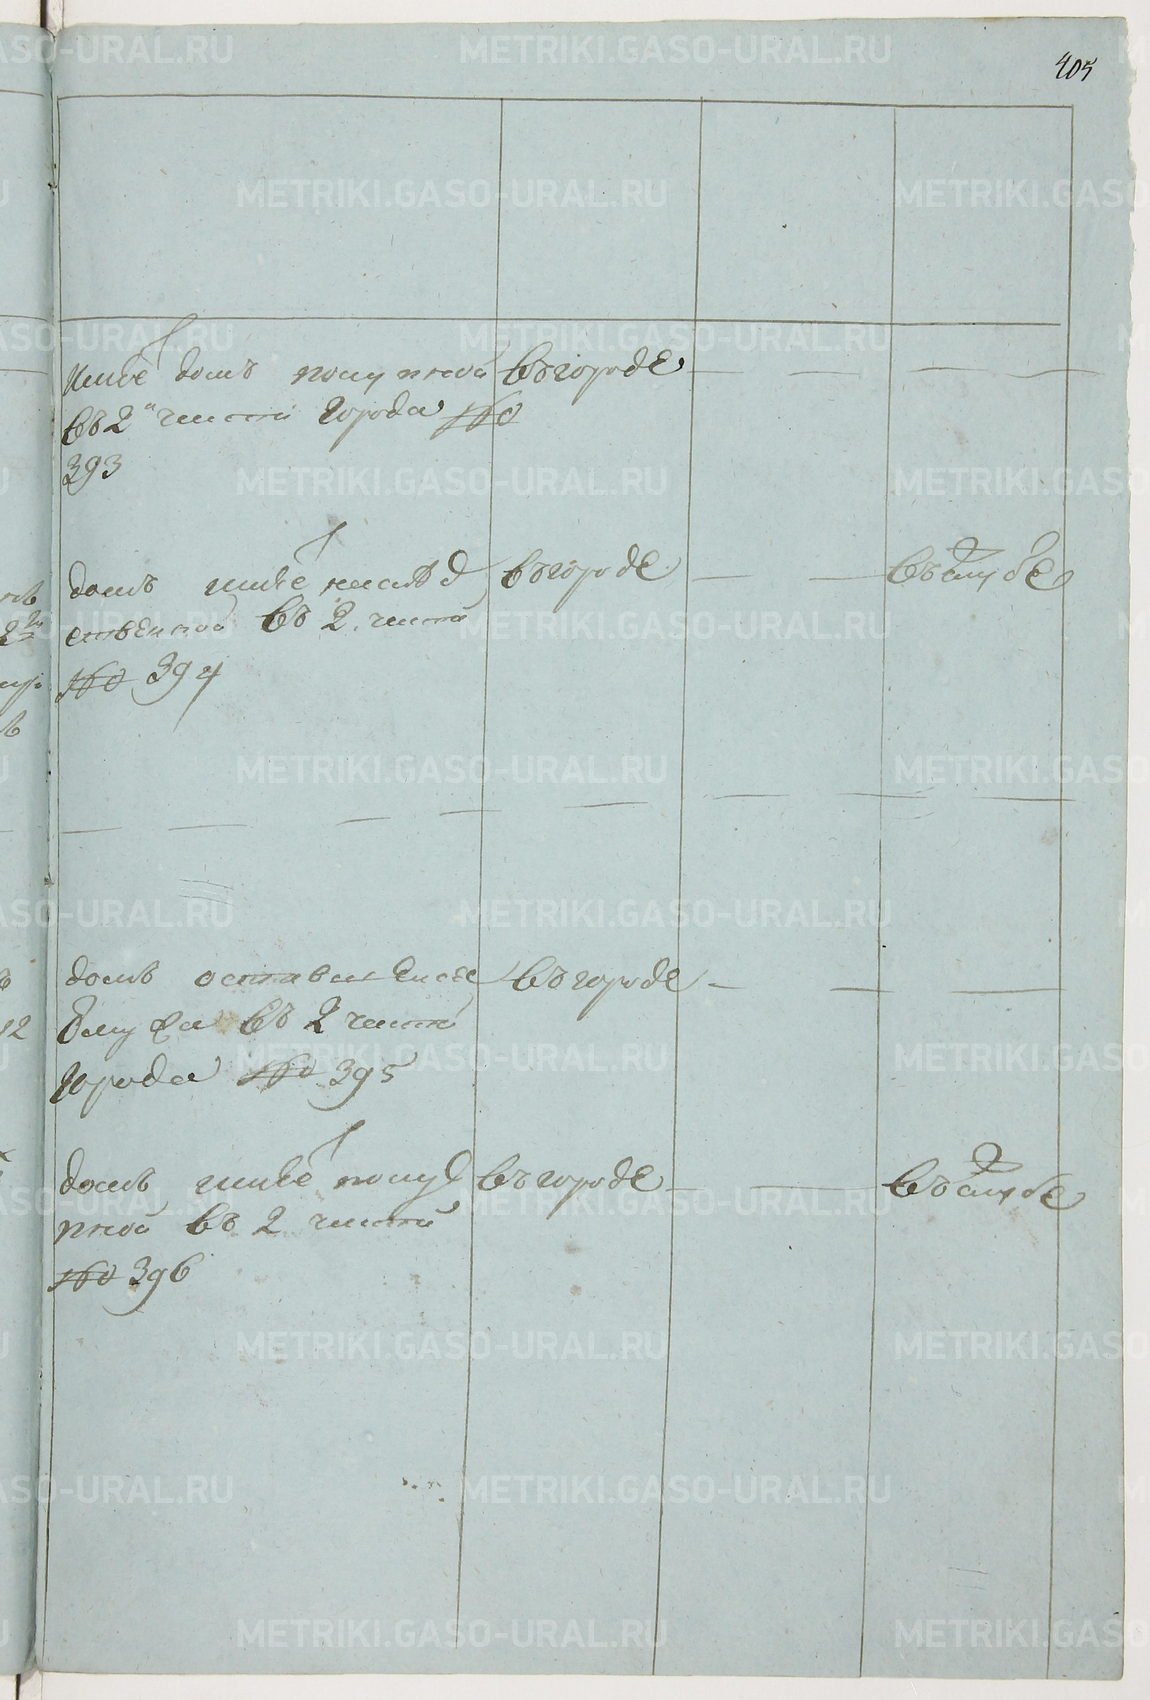 405
имѣетъ домъ покупной въ городе
въ 2й части города №
393
домъ имѣетъ наслѣд въ городе въ службе
ственной въ 2 части
№ 394
домъ оставшейся въ городе
мужа въ 2 части
города № 395
домъ имѣетъ покуп въ городе въ службе
пной въ 2 части
№ 396
METRIKI.GASO-URAL.RU